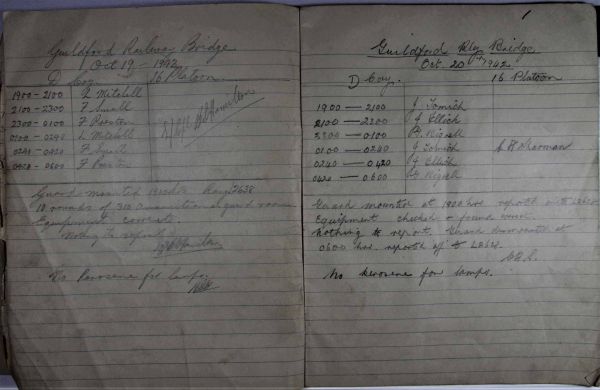 Guildford Railway Bridge
Oct 19th 1942
D Coy. 16 Platoon
1900 - 2100 A Mitchell
2100 - 2300 F Small
2300 - 0100 F Preston
0100 - 0240 A Mitchell
0241 - 0420 F Small
0420 - 0600 F Preston
Guard mounted
10 rounds of 310 ammunition in guard room
Equipment correct.
Nothing to report
No Kerosene for lamps
1
Guildford Rly Bridge
Oct. 20th 1942.
D Coy. 16 Platoon
1900 — 2100 J. Tomich
2100 — 2300 J. Ellich
2300 — 0100 B. Nizich
0100 — 0240 J. Tomich
0240 — 0420 J. Ellich
0420 — 0600 B. Nizich
Sharman
Guard mounted at 1900 hrs. reported to
Equipment checked & found correct.
Nothing to report. Guard dismounted at
0600 hrs. reported off to
No kerosene for lamps.